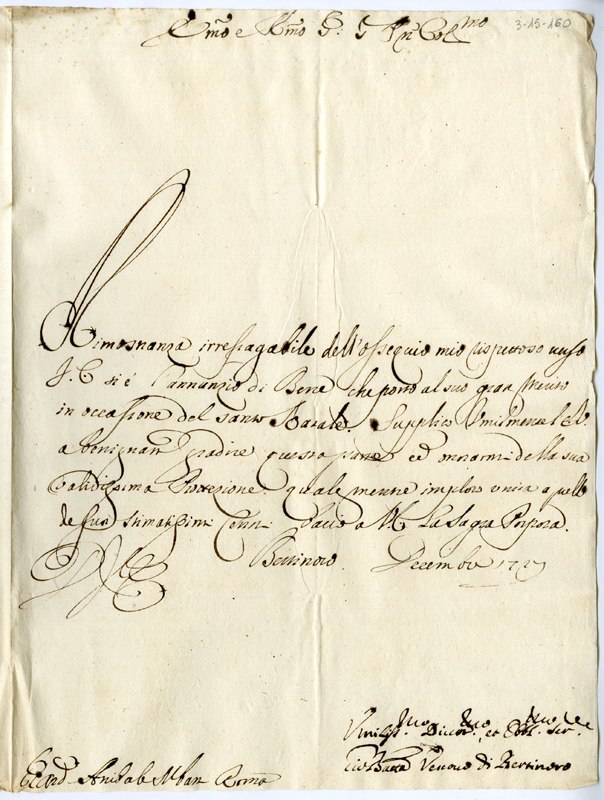 3-15-160
Emo e Rmo S: S Prn Colmo
Rimostranza irrefragabile dell'ossequio mio rispettoso verso
V. E. si é l'annunzio di Bene che porto al suo gran Merito
in occasione del Santo Natale. Supplico Umilmente l'E.V.
a benignarsi gradire questa parte ed onorarmi della sua
validissima Protezione quale mentre imploro unita a quella
de suoi stimatissimi Com.ti bacio a V.E. La Sagra Porpora.
Bertinoro Decembre 1727
Umiliss.mo Divot.mo et Obbl.mo Ser.re
Gio Batta Vescovo di Bertinoro
E Card Anibale Alban Roma